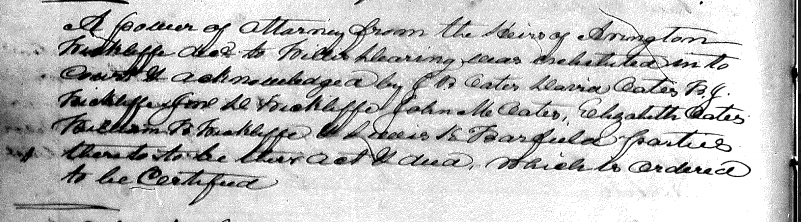 A power of attorney from the Heirs of Arington
Wickliffe decd to Willis Hearing was exhibited into
Court & acknowledged by J B Oates David Oates B. J.
Wickliffe, D Wickliffe John M Oates, Elizabeth Oates
William B Wickliffe & Lewis K Barfield parties
thereto to be their act & deed, which is ordered
to be Certified